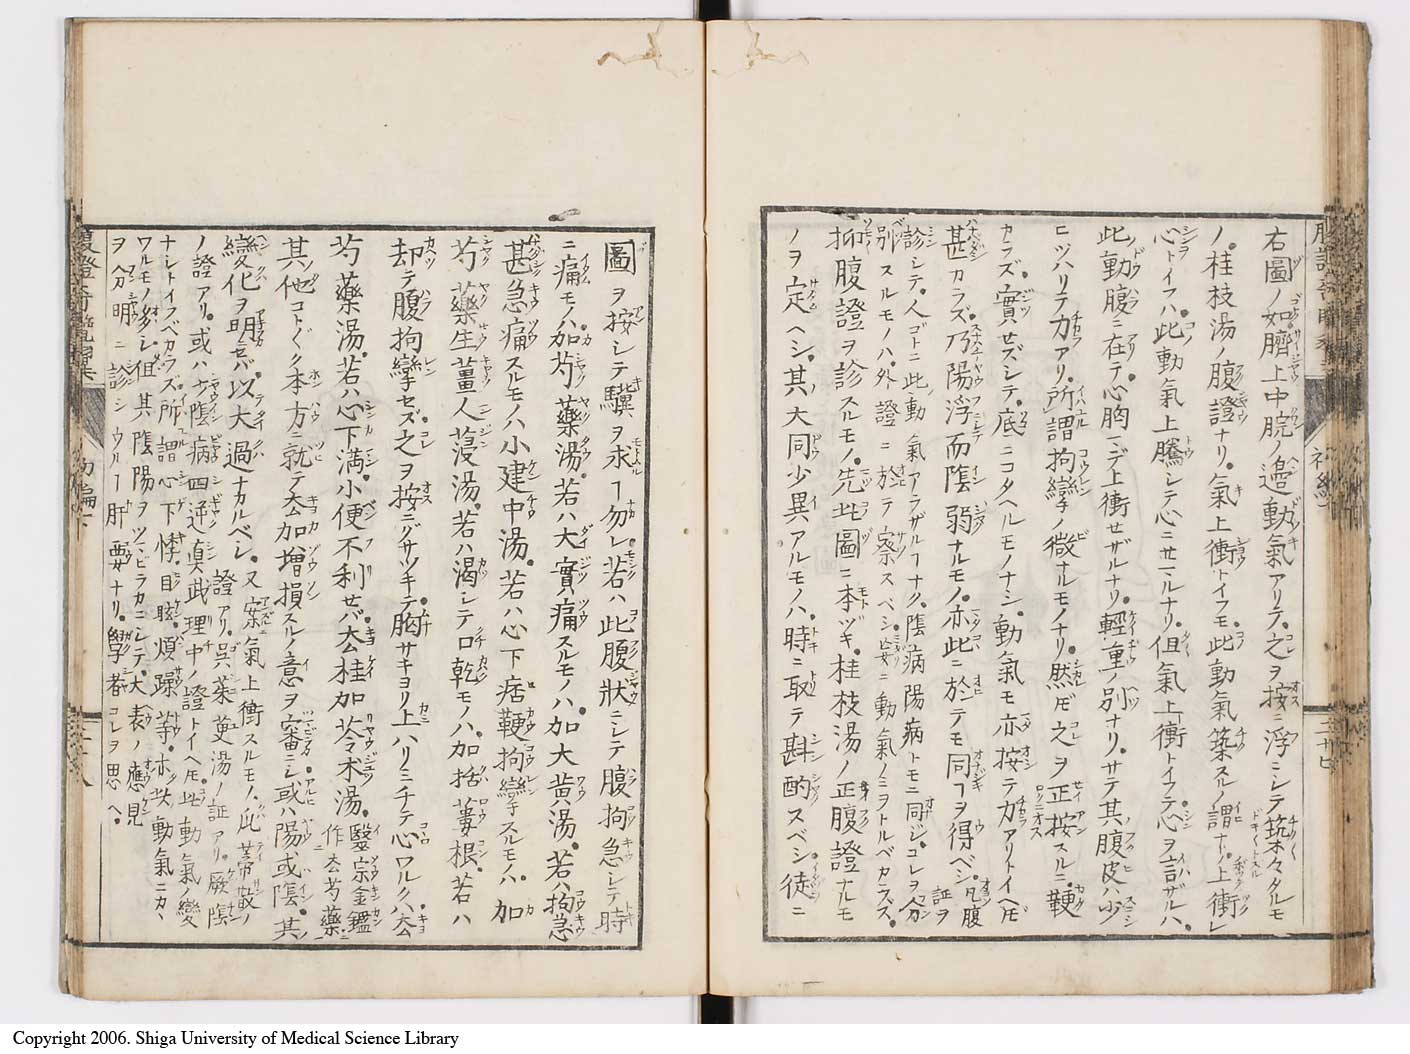 右圖ノ如臍上中脘ノ邉動氣アリテ之ヲ按ニ浮ニシテ築々タルモ
ノ桂枝湯ノ腹證ナリ氣上衝トイフモ此動氣築スルノ謂ナト上衝レ
心トイフハ此動氣上騰シテ心ニセマルナリ但氣上衝トイフテ心ヲ言ザルハ
此動腹ニ在テ心胸マデ上衝セザルナリ輕重ノ別ナリサテ其腹皮ハ少
ヒツハリテ力アリ所謂拘攣ノ微ナルモノナリ然𪜈之ヲ正按スルニ鞕
カラズ實セズシテ底ニコタヘルモノナシ動氣モ亦按テ力アリトイヘ𪜈
甚カラズ乃陽浮而陰弱ナルモノ亦此ニ於テモ同ヿヲ得ベシ凡腹證ヲ
診シテ人ゴトニ此動氣アラザルヿナク陰病陽病トモニ同ジコレヲ分
別スルモノハ外證ニ於テ察スベシ妄ニ動氣ノミヲトルベカラズ
抑腹證ヲ診スルモノ先此圖ニ本ヅキ桂枝湯ノ正腹證ナルモ
ノヲ定ヘシ其大同少異アルモノハ時ニ取テ斟酌スベシ徒ニ
圖ヲ按シテ驥ヲ求ヿ勿レ若ハ此腹狀ニシテ腹拘急シテ時
ニ痛モノハ加芍藥湯若ハ大實痛スルモノハ加大黄湯若ハ拘急
甚急痛スルモノハ小建中湯若ハ心下痞鞕拘攣スルモノハ加
芍藥生薑人葠湯若ハ渴シテ口乾モノハ加括蔞根若ハ
却テ腹拘攣セズ之ヲ按ニグサツキテ胸サキヨリ上ハリミチテ心ワルクハ去
芍藥湯若ハ心下満小便不利セバ去桂加苓朮湯 醫宗金鑑作去芍藥
其他コト〴〵ク本方ニ就テ去加增損スルノ意ヲ審ニシ或ハ陽或陰其
變化ヲ明セバ以大過ナカルベシ又案氣上衝スルモノ此蒂散ノ
證アリ或ハ少陰病四逆眞武理中ノ證アリ呉茱萸湯ノ証アリ厥陰
ノ證トイヘ𪜈此動氣ノ變
ナシトイフベカラズ所謂心下悸目眩煩躁等ホツ此動氣ニカヽ
ワルモノ多シ但其陰陽ヲツマビラカニシテ大表ノ應見
ヲ分明ニ診シウルヿ肝要ナリ學者コレヲ思ヘ